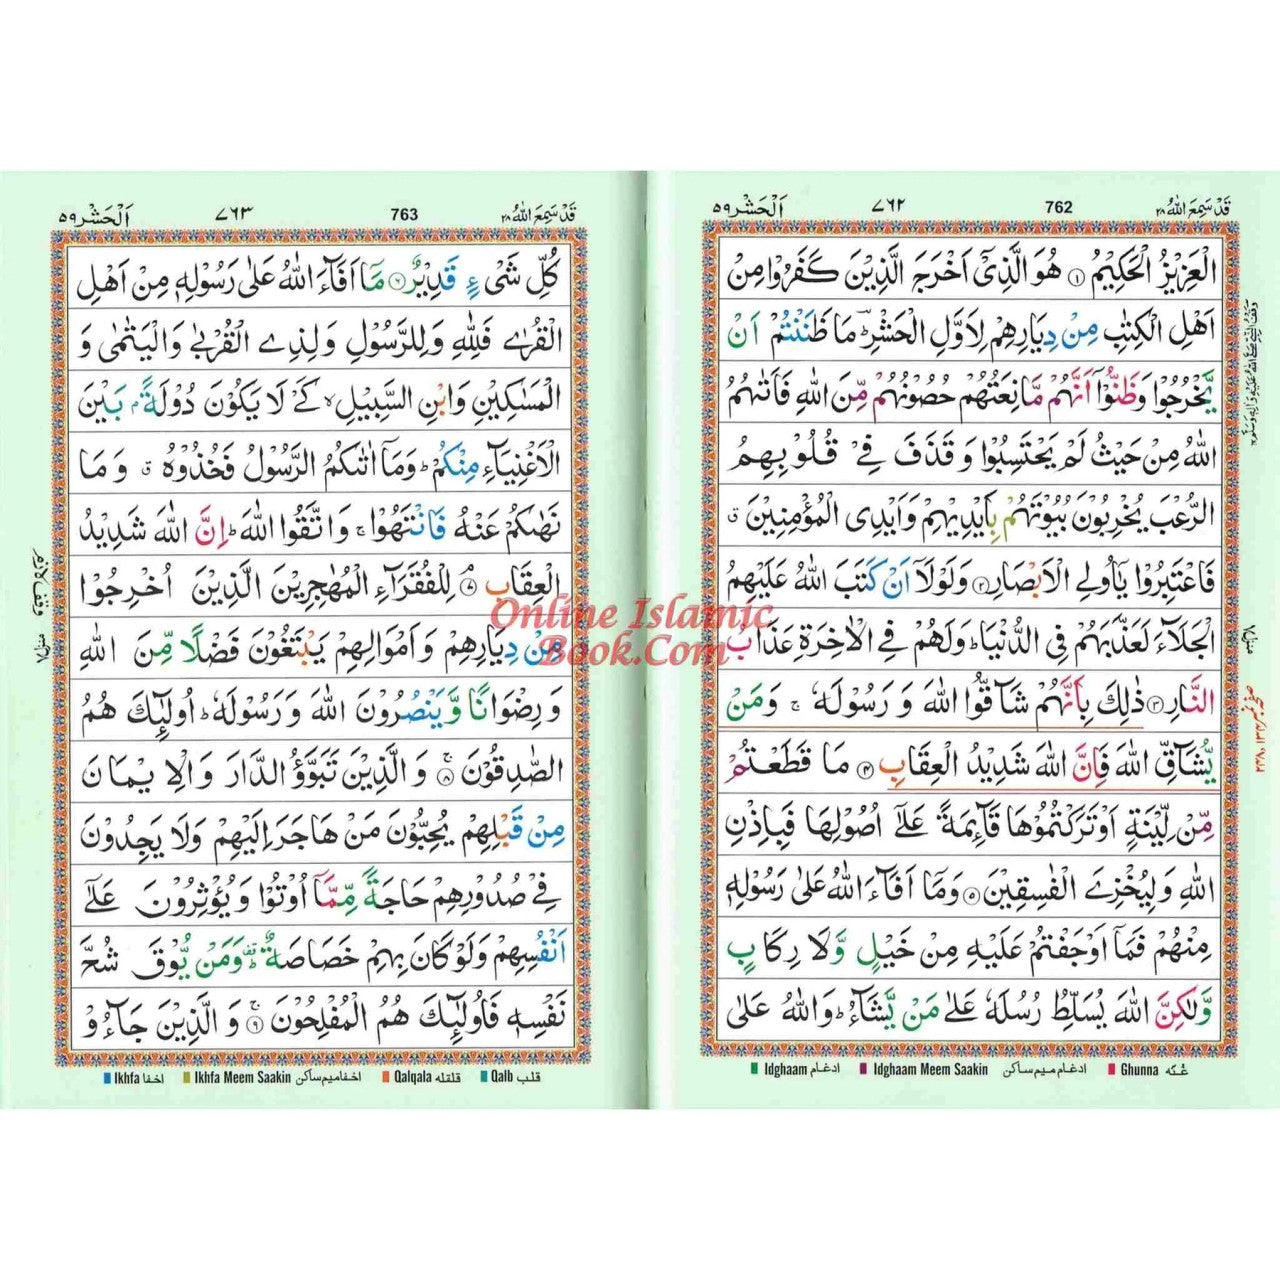 قَدْ سَمِعَ اللّٰهُ ٢٨ 762 ٧٦٢ اَلْحَشْر ٥٩
الْعَزِيْزُ الْحَكِيْمُ ۝١ هُوَ الَّذِىْٓ اَخْرَجَ الَّذِيْنَ كَفَرُوْا مِنْ
اَهْلِ الْكِتٰبِ مِنْ دِيَارِهِمْ لِاَوَّلِ الْحَشْرِؔ مَا ظَنَنْتُمْ اَنْ
يَّخْرُجُوْا وَظَنُّوْٓا اَنَّهُمْ مَّانِعَتُهُمْ حُصُوْنُهُمْ مِّنَ اللّٰهِ فَاَتٰىهُمُ
اللّٰهُ مِنْ حَيْثُ لَمْ يَحْتَسِبُوْا وَقَذَفَ فِىْ قُلُوْبِهِمُ
الرُّعْبَ يُخْرِبُوْنَ بُيُوْتَهُمْ بِاَيْدِيْهِمْ وَاَيْدِى الْمُؤْمِنِيْنَ ق
فَاعْتَبِرُوْا يٰٓاُولِى الْاَبْصَارِ ۝٢ وَلَوْلَآ اَنْ كَتَبَ اللّٰهُ عَلَيْهِمُ
الْجَلَآءَ لَعَذَّبَهُمْ فِى الدُّنْيَاؕ وَلَهُمْ فِى الْاٰخِرَةِ عَذَابُ
النَّارِ ۝٣ ذٰلِكَ بِاَنَّهُمْ شَآقُّوا اللّٰهَ وَرَسُوْلَهٗ ج وَمَنْ
يُّشَآقِّ اللّٰهَ فَاِنَّ اللّٰهَ شَدِيْدُ الْعِقَابِ ۝٤ مَا قَطَعْتُمْ
مِّنْ لِّيْنَةٍ اَوْ تَرَكْتُمُوْهَا قَآئِمَةً عَلٰٓى اُصُوْلِهَا فَبِاِذْنِ
اللّٰهِ وَلِيُخْزِىَ الْفٰسِقِيْنَ ۝٥ وَمَآ اَفَآءَ اللّٰهُ عَلٰى رَسُوْلِهٖ
مِنْهُمْ فَمَآ اَوْجَفْتُمْ عَلَيْهِ مِنْ خَيْلٍ وَّلَا رِكَابٍ
وَّلٰكِنَّ اللّٰهَ يُسَلِّطُ رُسُلَهٗ عَلٰى مَنْ يَّشَآءُؕ وَاللّٰهُ عَلٰى
Idghaam ادغام Idghaam Meem Saakin ادغام میم ساکن Ghunna غُنّه
منزل
قَدْ سَمِعَ اللّٰهُ ٢٨ 763 ٧٦٣ اَلْحَشْر ٥٩
كُلِّ شَىْءٍ قَدِيْرٌ ۝٦ مَآ اَفَآءَ اللّٰهُ عَلٰى رَسُوْلِهٖ مِنْ اَهْلِ
الْقُرٰى فَلِلّٰهِ وَلِلرَّسُوْلِ وَلِذِى الْقُرْبٰى وَالْيَتٰمٰى وَ
الْمَسٰكِيْنِ وَابْنِ السَّبِيْلِۙ كَىْ لَا يَكُوْنَ دُوْلَةًۢ بَيْنَ
الْاَغْنِيَآءِ مِنْكُمْؕ وَمَآ اٰتٰىكُمُ الرَّسُوْلُ فَخُذُوْهُ ق وَمَا
نَهٰىكُمْ عَنْهُ فَانْتَهُوْا ج وَاتَّقُوا اللّٰهَؕ اِنَّ اللّٰهَ شَدِيْدُ
الْعِقَابِ ۝٧ لِلْفُقَرَآءِ الْمُهٰجِرِيْنَ الَّذِيْنَ اُخْرِجُوْا
مِنْ دِيَارِهِمْ وَاَمْوَالِهِمْ يَبْتَغُوْنَ فَضْلًا مِّنَ اللّٰهِ
وَرِضْوَانًا وَّيَنْصُرُوْنَ اللّٰهَ وَرَسُوْلَهٗؕ اُولٰٓئِكَ هُمُ
الصّٰدِقُوْنَ ۝٨ وَالَّذِيْنَ تَبَوَّؤُ الدَّارَ وَالْاِيْمَانَ
مِنْ قَبْلِهِمْ يُحِبُّوْنَ مَنْ هَاجَرَ اِلَيْهِمْ وَلَا يَجِدُوْنَ
فِىْ صُدُوْرِهِمْ حَاجَةً مِّمَّآ اُوْتُوْا وَيُؤْثِرُوْنَ عَلٰٓى
اَنْفُسِهِمْ وَلَوْ كَانَ بِهِمْ خَصَاصَةٌؕ وَمَنْ يُّوْقَ شُحَّ
نَفْسِهٖ فَاُولٰٓئِكَ هُمُ الْمُفْلِحُوْنَ ۝٩ وَالَّذِيْنَ جَآءُوْ
Ikhfa اخفا Ikhfa Meem Saakin اخفا میم ساکن Qalqala قلقله Qalb قلب
وقف لازم
Online Islamic
Book.Com